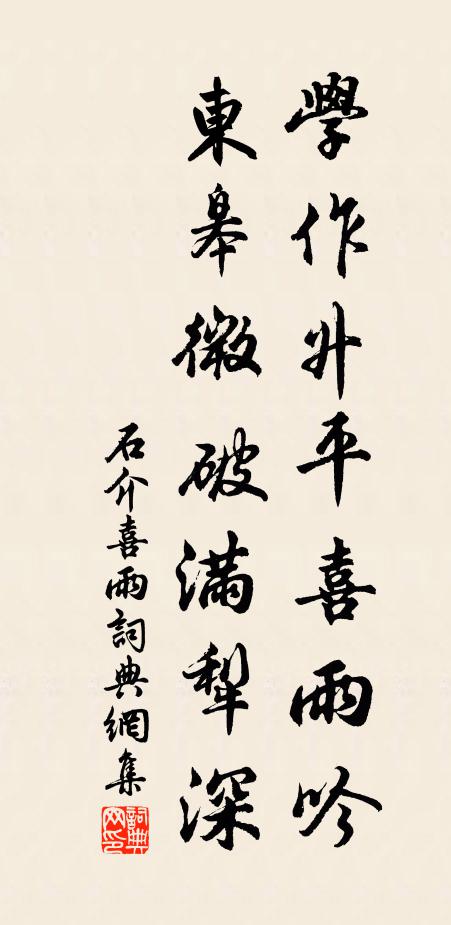 學作升平喜雨吟
東皋微破滿犁深
石介喜雨詞典網集
詞典网印